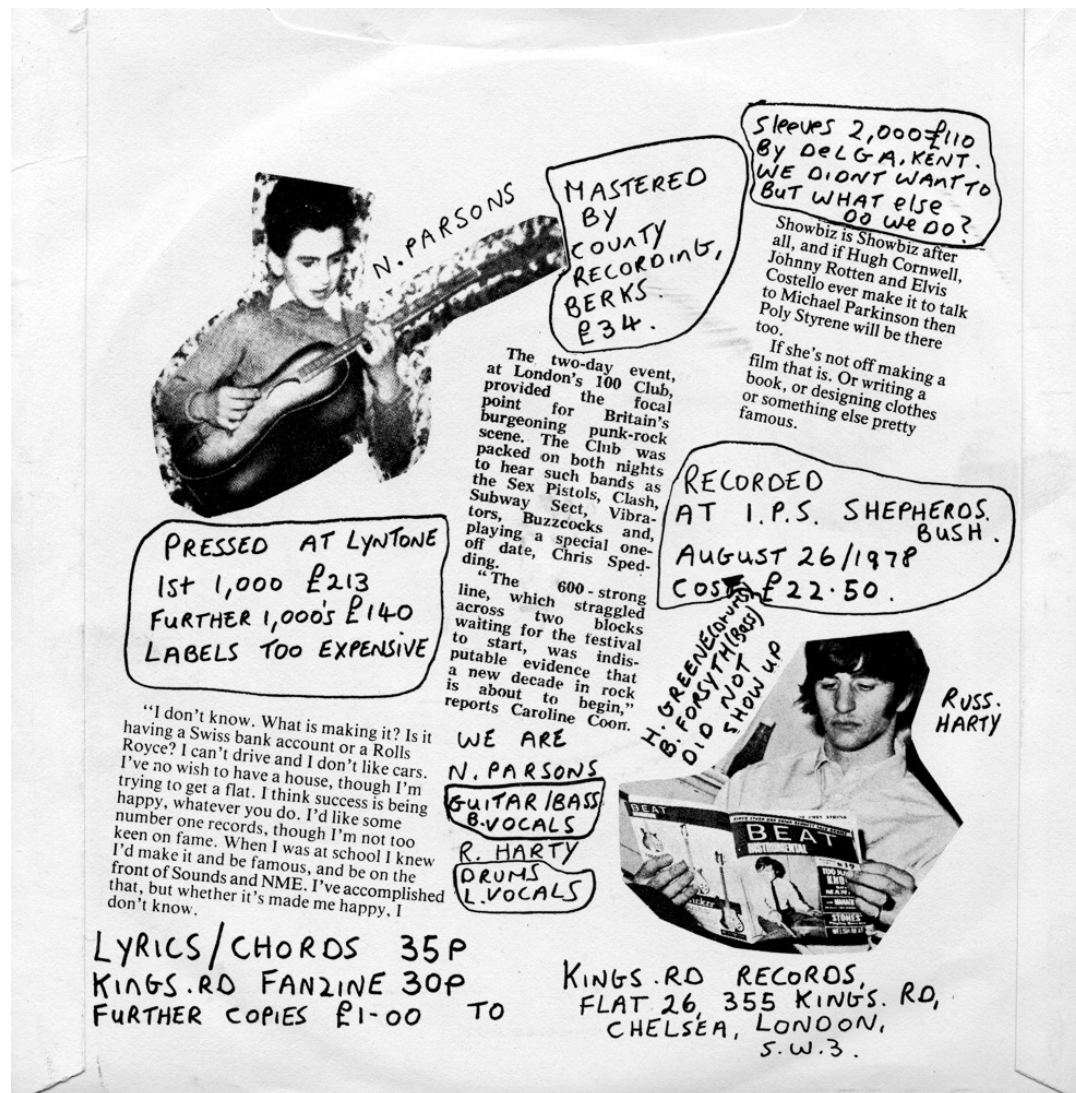 N. PARSONS
MASTERED
BY
COUNTY
RECORDING,
BERKS.
£34.
Sleeves 2,000 = £110
BY DELGA, KENT.
WE DIDNT WANT TO
BUT WHAT else
DO WE DO?
Showbiz is Showbiz after
all, and if Hugh Cornwell,
Johnny Rotten and Elvis
Costello ever make it to talk
to Michael Parkinson then
Poly Styrene will be there
too.
If she's not off making a
film that is. Or writing a
book, or designing clothes
or something else pretty
famous.
The two-day event,
at London's 100 Club,
provided the focal
point for Britain's
burgeoning punk-rock
scene. The Club was
packed on both nights
to hear such bands as
the Sex Pistols, Clash,
Subway Sect, Vibra-
tors, Buzzcocks and,
playing a special one-
off date, Chris Sped-
ding.
"The 600-strong
line, which straggled
across two blocks
waiting for the festival
to start, was indis-
putable evidence that
a new decade in rock
is about to begin,"
reports Caroline Coon.
RECORDED
AT I.P.S. SHEPHERDS.
BUSH.
AUGUST 26/1978
COST £22.50.
PRESSED AT LYNTONE
1st 1,000 £213
FURTHER 1,000's £140
LABELS TOO EXPENSIVE
H. GREENE (Drums)
B. FORSYTH (Bass)
DID NOT
SHOW UP
RUSS.
HARTY
BEAT
BEAT
INSTRUMENTAL
STONES
"I don't know. What is making it? Is it
having a Swiss bank account or a Rolls
Royce? I can't drive and I don't like cars.
I've no wish to have a house, though I'm
trying to get a flat. I think success is being
happy, whatever you do. I'd like some
number one records, though I'm not too
keen on fame. When I was at school I knew
I'd make it and be famous, and be on the
front of Sounds and NME. I've accomplished
that, but whether it's made me happy, I
don't know.
WE ARE
N. PARSONS
GUITAR/BASS
B.VOCALS
R. HARTY
DRUMS
L.VOCALS
LYRICS/CHORDS 35P
KINGS.RD FANZINE 30P
FURTHER COPIES £1-00 TO
KINGS.RD RECORDS,
FLAT 26, 355 KINGS. RD,
CHELSEA, LONDON,
S.W.3.